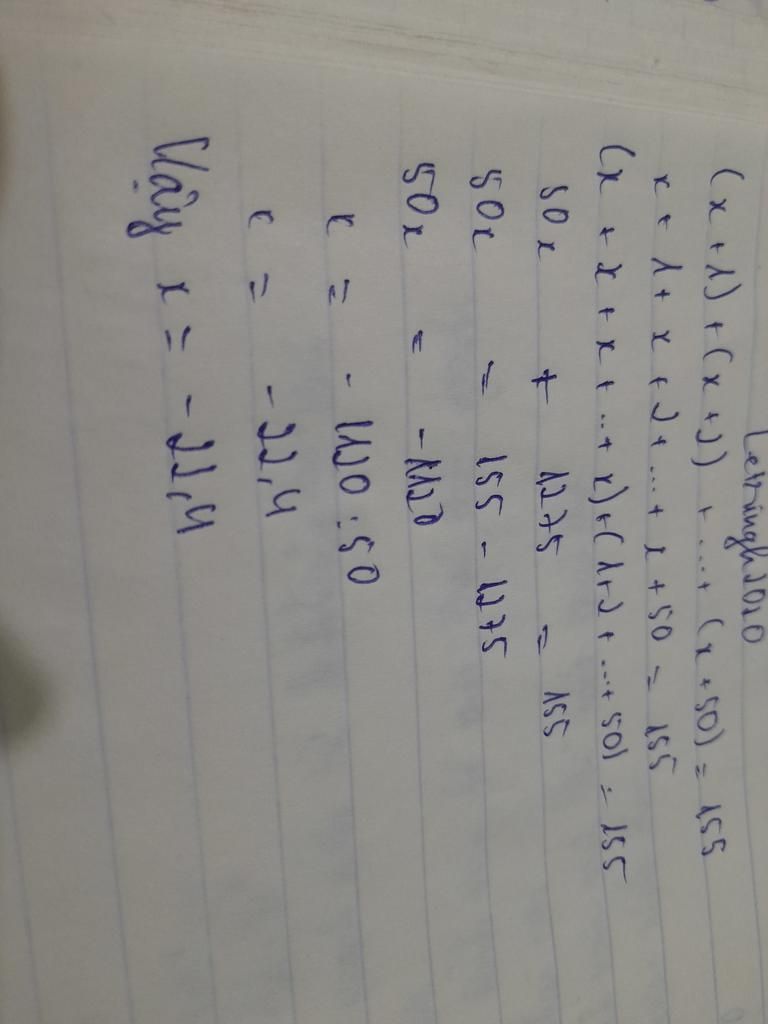 (x+1)+(x+2)+...+(x+50)=155
x+1+x+2+...+x+50=155
(x+x+x+...+x)+(1+2+...+50)=155
50x + 1275 = 155
50x = 155 - 1275
50x = -1120
x = -1120:50
x = -22,4
Vậy x = -22,4